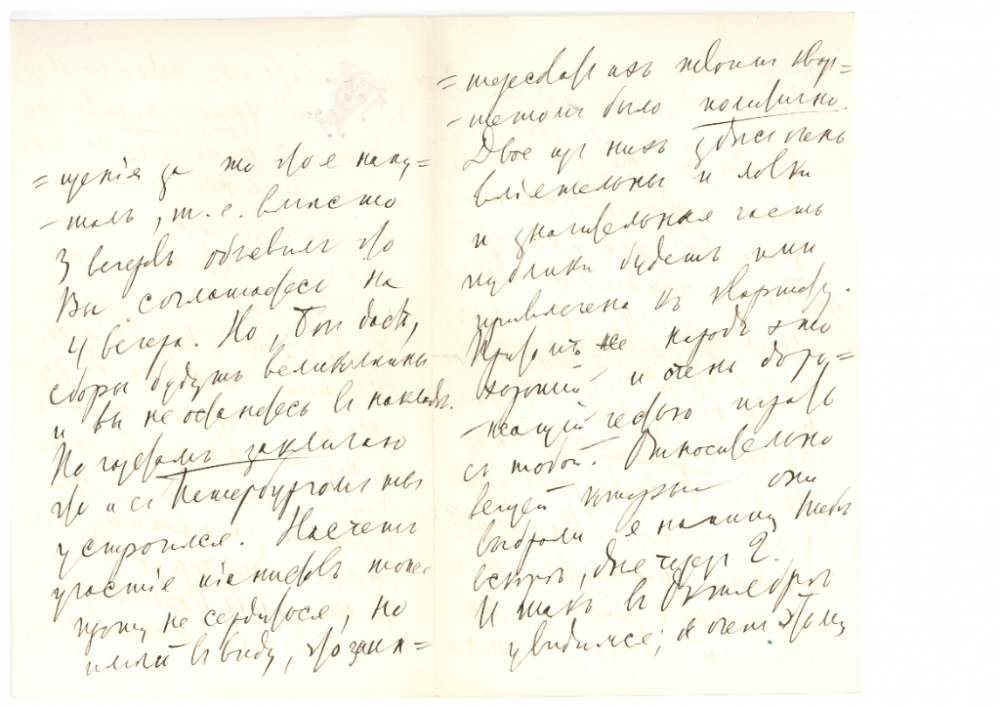 = щенія за то что я напу=
- талъ, т. е. вмѣсто
3 вечеровъ объявилъ что
Вы соглашаетесь на
4 вечера. Но, Богъ дастъ,
сборы будутъ великолѣпны
и вы не останетесь въ накладѣ.
По газетамъ заключаю
что и съ Петербургомъ ты
устроился. Насчетъ
участіе піанистовъ тоже
прошу не сердиться, но
имѣй въ виду, что заин=
= тересовать ихъ твоимъ квар=
- тетомъ было политично.
Двое изъ нихъ здѣсь очень
вліятельны и ловки
и значительная часть
публики будетъ ими
привлечена къ квартету.
Притомъ же народъ это
хорошій и очень доро=
- жащій честью играть
съ тобой. Относительно
вещей которыя они
выбрали я напишу тебѣ
вскорѣ, дня черезъ 2.
И такъ въ Октябрѣ
увидимся; я очень этому